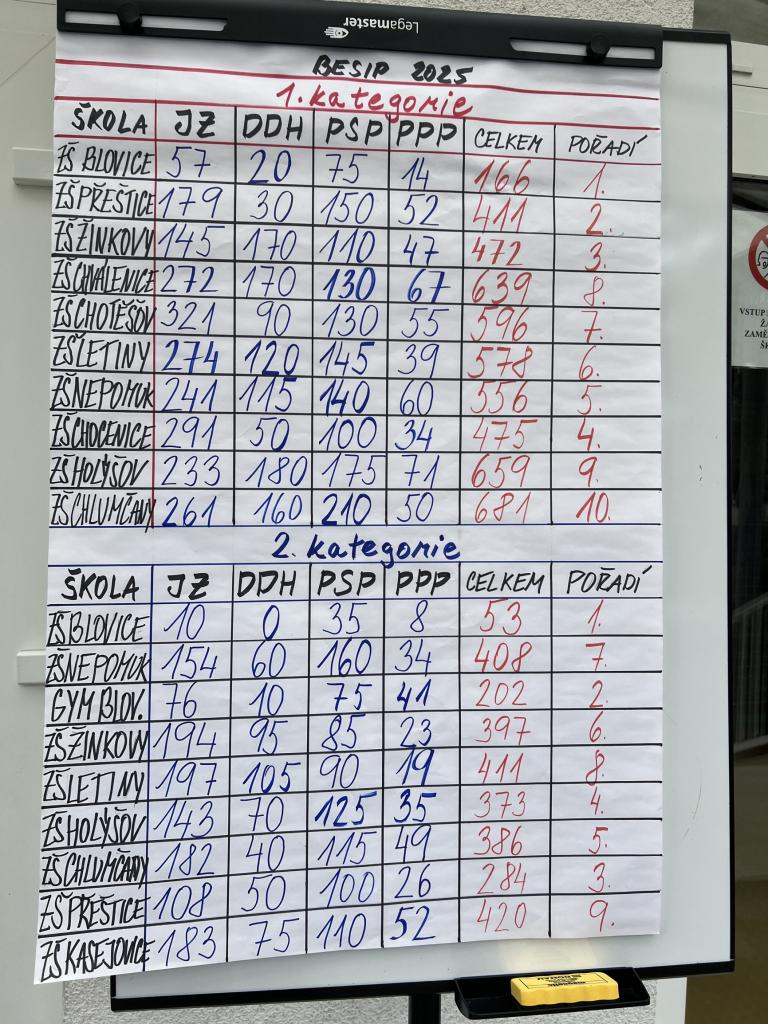 Legamaster
BESIP 2025
1. kategorie
ŠKOLA JZ DDH PSP PPP CELKEM POŘADÍ
ZŠ BLOVICE 57 20 75 14 166 1.
ZŠ PŘEŠTICE 179 30 150 52 411 2.
ZŠ ŽINKOVY 145 170 110 47 472 3.
ZŠ CHVALENICE 272 170 130 67 639 8.
ZŠ CHOTĚŠOV 321 90 130 55 596 7.
ZŠ LETINY 274 120 145 39 578 6.
ZŠ NEPOMUK 241 115 140 60 556 5.
ZŠ CHOCENICE 291 50 100 34 475 4.
ZŠ HOLÝŠOV 233 180 175 71 659 9.
ZŠ CHLUMČANY 261 160 210 50 681 10.
2. kategorie
ŠKOLA JZ DDH PSP PPP CELKEM POŘADÍ
ZŠ BLOVICE 10 0 35 8 53 1.
ZŠ NEPOMUK 154 60 160 34 408 7.
GYM BLOV. 76 10 75 41 202 2.
ZŠ ŽINKOVY 194 95 85 23 397 6.
ZŠ LETINY 197 105 90 19 411 8.
ZŠ HOLÝŠOV 143 70 125 35 373 4.
ZŠ CHLUMČANY 182 40 115 49 386 5.
ZŠ PŘEŠTICE 108 50 100 26 284 3.
ZŠ KASEJOVICE 183 75 110 52 420 9.
VSTUP